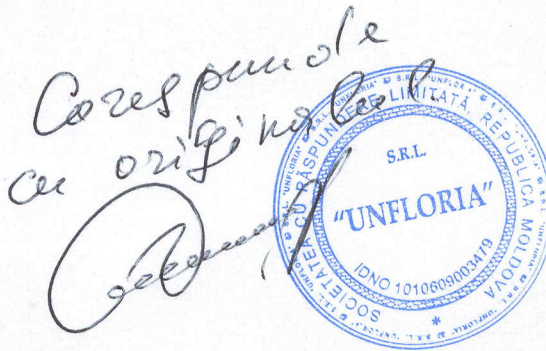 Corespunde
cu originalul
SOCIETATEA CU RĂSPUNDERE LIMITATĂ REPUBLICA MOLDOVA
S.R.L.
"UNFLORIA"
IDNO 1010609003479
*